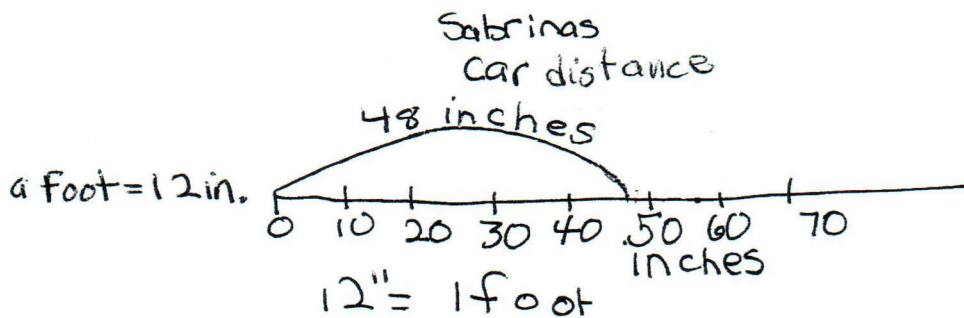 Sabrinas
Car distance
48 inches
a foot = 12in.
0 10 20 30 40 50 60 70
inches
12" = 1 foot